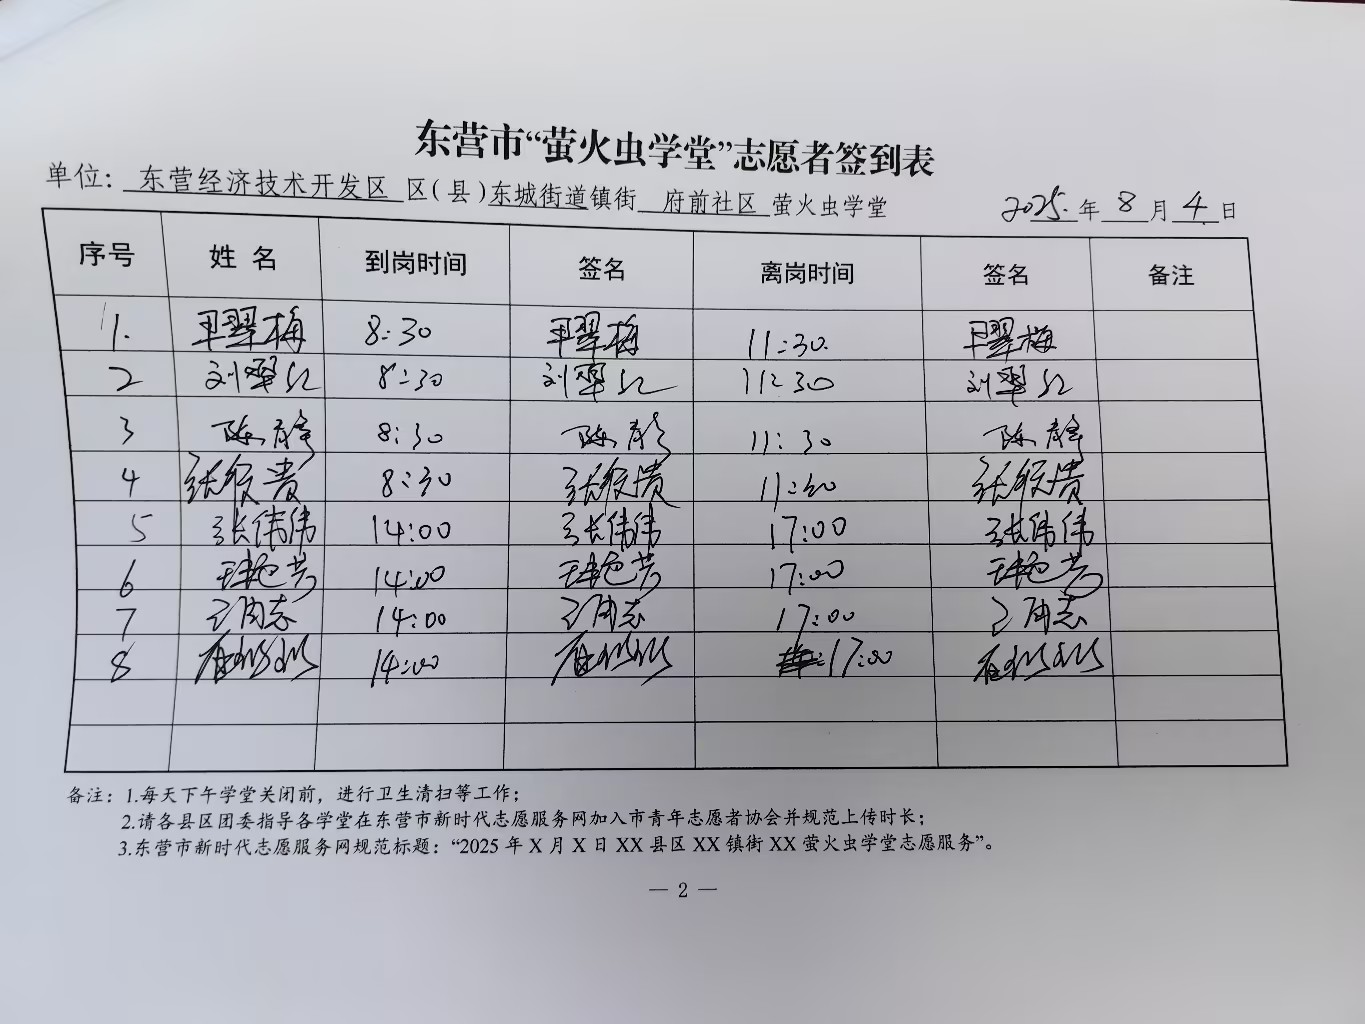 东营市“萤火虫学堂”志愿者签到表
单位：东营经济技术开发区 区(县)东城街道镇街 府前社区 萤火虫学堂 2025.年 8 月 4 日
序号 姓名 到岗时间 签名 离岗时间 签名 备注
1. 王翠梅 8:30 王翠梅 11:30. 王翠梅
2 刘翠红 8:30 刘翠红 11:30 刘翠红
3 陈静 8:30 陈静 11:30 陈静
4 8:30 11:30
5 张伟伟 14:00 张伟伟 17:00 张伟伟
6 14:00 17:00
7 14:00 17:00
8 14:00 17:00
备注：1.每天下午学堂关闭前，进行卫生清扫等工作；
2.请各县区团委指导各学堂在东营市新时代志愿服务网加入市青年志愿者协会并规范上传时长；
3.东营市新时代志愿服务网规范标题：“2025 年 X 月 X 日 XX 县区 XX 镇街 XX 萤火虫学堂志愿服务”。
— 2 —